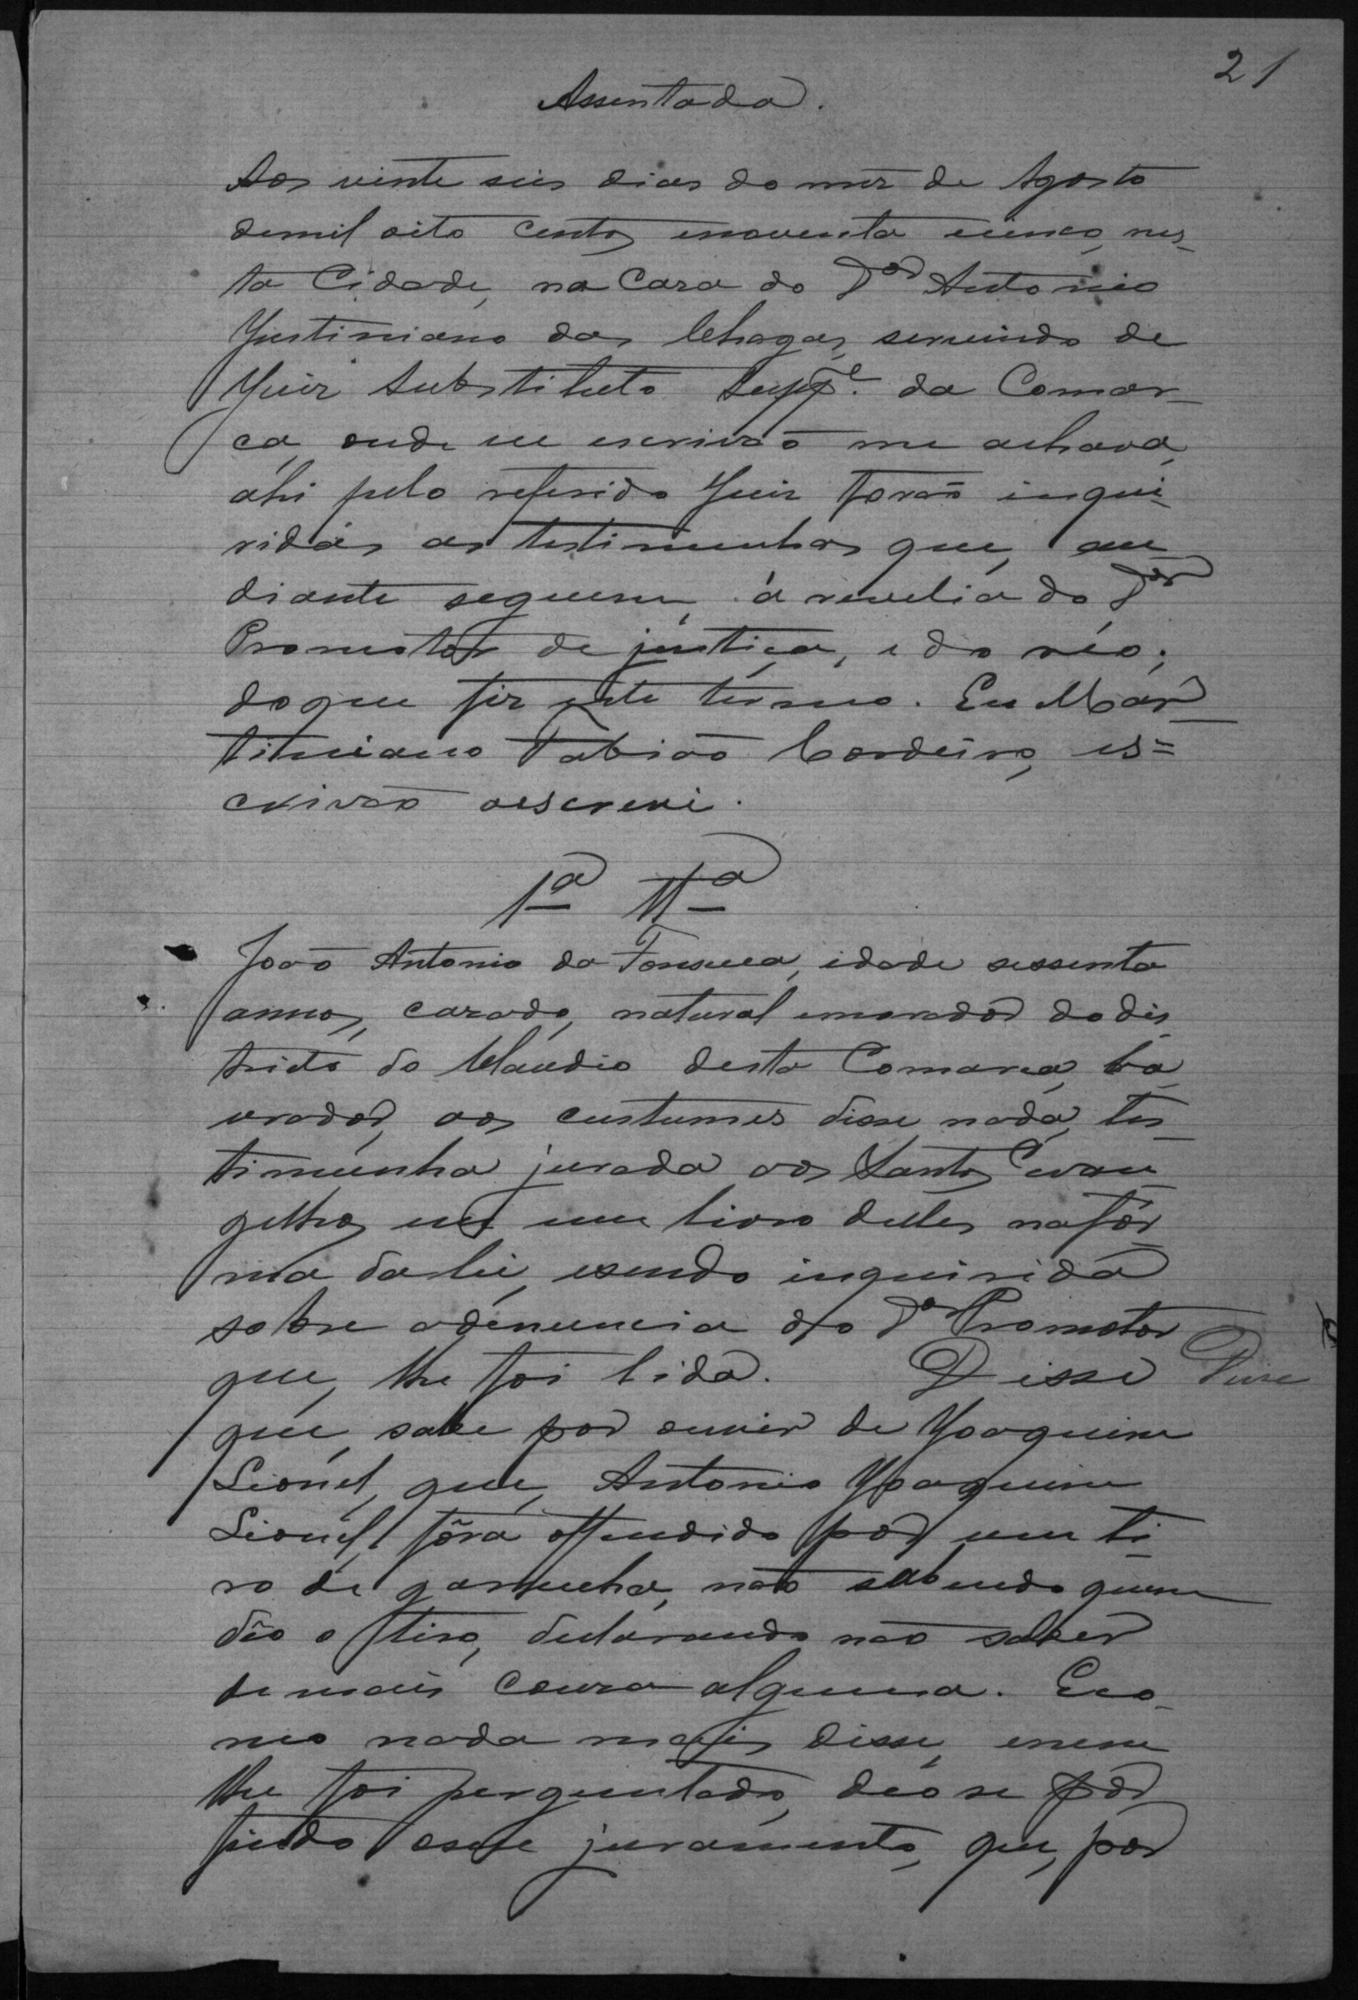 21
Assentada.
Aos vinte seis dias do mez de Agosto
demil oito centos enoventa ecinco, nes-
ta Cidade, na Caza do Dor Antonio
Justiniano das Chagas, servindo de
Juiz Substituto Suppe. da Comar-
ca, onde eu escrivão me achava,
ahi pelo referido Juiz forão inqui-
ridas as testimunhas que, au
diante seguem á revelia do Dor
Promotor de justiça, e do réo;
doque fiz este termo. Eu Mar-
timiano Fabião Cordeiro, es=
crivão oescrevi.
1ª Tª
João Antonio da Fonseca, idade sessenta
annos, cazado, natural emorador do dis
tricto do Claudio desta Comarca, la
vrador, aos custumes disse nada, tes-
timunha jurada aos Santos Evan
gelhos em um livro delles na fór
ma da lei, esendo inquirida
sobre adenuncia do Dor Promotor
que, lhe foi lida. Disse Disse
que, sabe por ouvir de Joaquim
Lionel, que, Antonio Joaquim
Lionel, fôra offendido por um ti-
ro de garrucha, não sabendo quem
dêo o tiro, declarando não saber
de mais couza alguma. Eco-
mo nada mais disse, enem
lhe foi perguntado, dêo se por
findo esse juramento, que, por